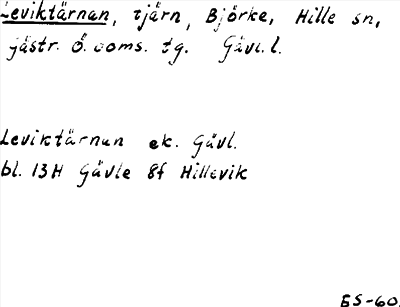 Leviktärnan, tjärn, Björke, Hille sn,
Gästr. Ö. doms. tg. Gävl. l.
Leviktärnan ek. Gävl.
bl. 13H Gävle 8f Hillevik
ES-60